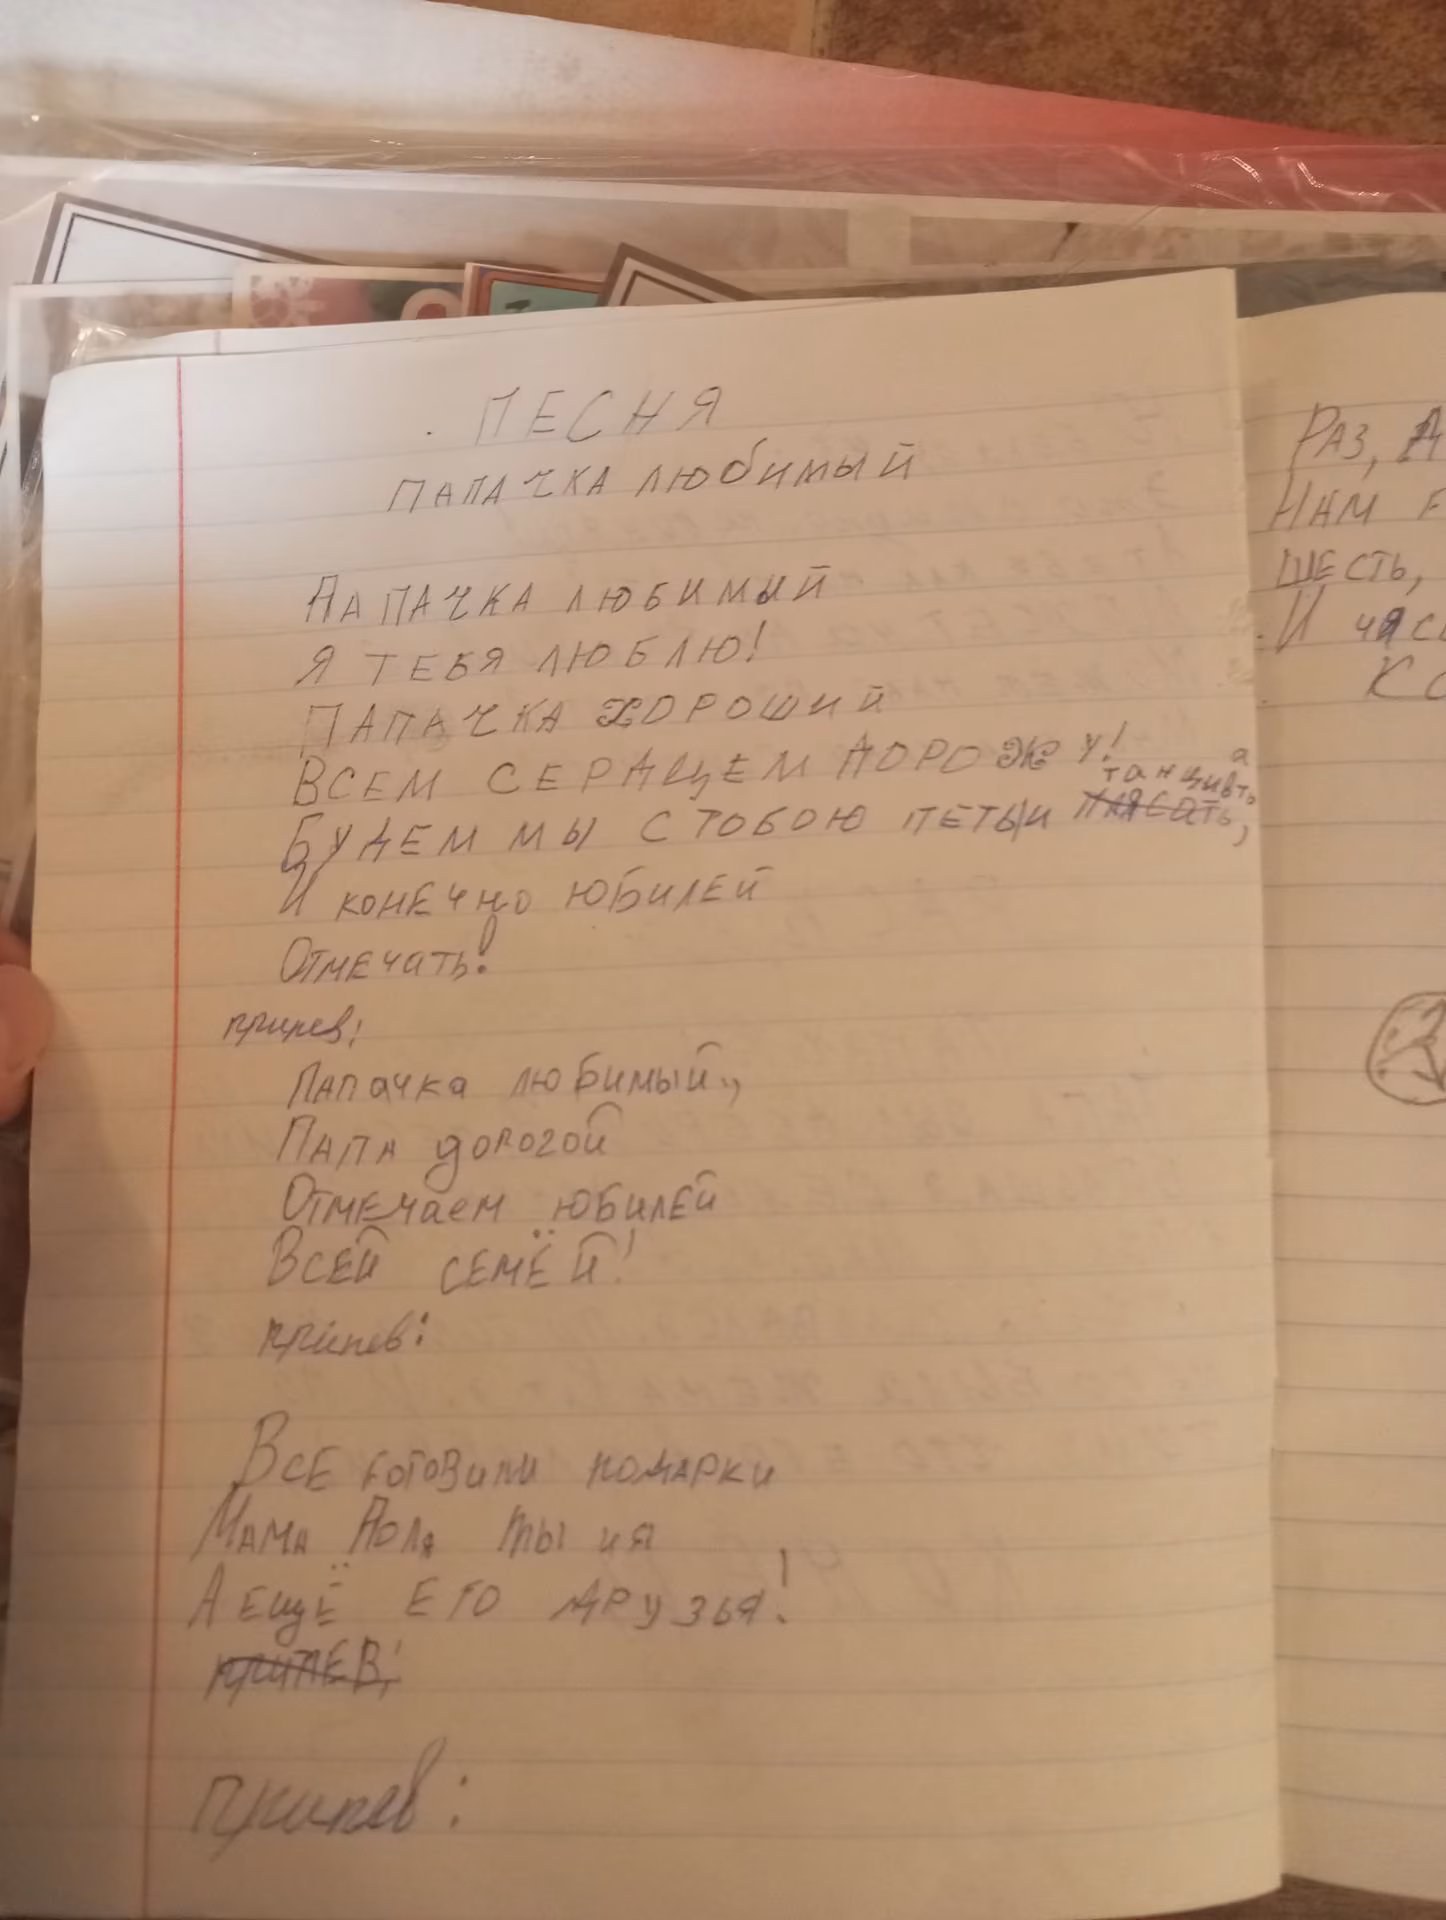 ПЕСНЯ
ПАПАЧКА ЛЮБИМЫЙ
ПАПАЧКА ЛЮБИМЫЙ
Я ТЕБЯ ЛЮБЛЮ!
ПАПАЧКА ХОРОШИЙ
ВСЕМ СЕРДЦЕМ ДОРОЖУ!
БУДЕМ МЫ С ТОБОЮ ПЕТЬ И ПЛЯСАТЬ, танцивать
И КОНЕЧНО ЮБИЛЕЙ
ОТМЕЧАТЬ!
припев:
ПАПАЧКА ЛЮБИМЫЙ,
ПАПА ДОРОГОЙ
ОТМЕЧАЕМ ЮБИЛЕЙ
ВСЕЙ СЕМЁЙ!
припев:
ВСЕ ГОТОВИЛИ ПОДАРКИ
МАМА ПОЛЯ ТЫ И Я
А ЕЩЁ ЕГО ДРУЗЬЯ!
ПРИПЕВ:
припев:
РАЗ,
НАМ
ШЕСТЬ,
И